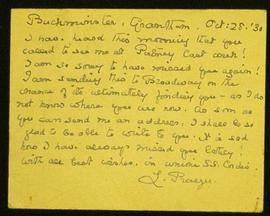 Buckminster, Grantham. Oct: 28. '30
I have heard this morning that you
called to see me at Putney last week!
I am so sorry to have missed you again!
I am sending this to Broadway on the
chance of its ultimately finding you - as I do
not know where you are now. As soon as
you can send me an address, I shall be so
glad to be able to write to you. It is sad
how I have always missed you lately!
With all best wishes, in unione S.S. Cordis
L.